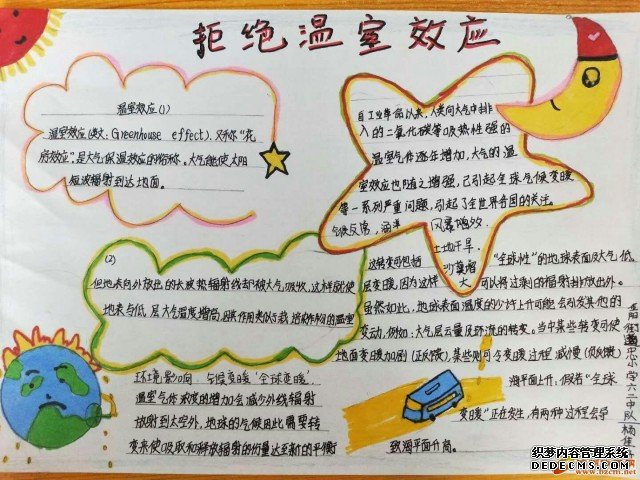 拒绝温室效应
温室效应(1)
温室效应(英文: Greenhouse effect), 又称“花
房效应”, 是大气保温效应的俗称。大气能使太阳
短波辐射到达地面。
自工业革命以来, 人类向大气中排
入的二氧化碳等吸热性强的
温室气体逐年增加, 大气的温
室效应也随之增强, 已引起全球气候变暖
等一系列严重问题, 引起了全世界各国的关注。
气候反常, 海洋 风暴增多
土地干旱,
沙漠增
大
(2)
但地表向外放出的长波热辐射线却被大气吸收, 这样就使
地表与低层大气温度增高, 因其作用类似于栽培农作物的温室
这转变可包括 “全球性”的地球表面及大气低
层变暖, 因为这样 可以将过剩的辐射排放出外。
虽然如此, 地球表面温度的少许上升可能会引发其他的
变动, 例如: 大气层云量及环流的转变。当中某些转变可使
地面变暖加剧(正反馈), 某些则可令变暖过程减慢(负反馈)
环境影响 气候变暖 ‘全球变暖’
温室气体浓度的增加会减少外线辐射
放射到太空外, 地球的气候因此需要转
变来使吸取和释放辐射的份量达至新的平衡
海平面上升: 假若“全球
变暖”正在发生, 有两种过程会导
致海平面升高。
小学六二中队
织梦内容管理系统
DEDECMS.COM